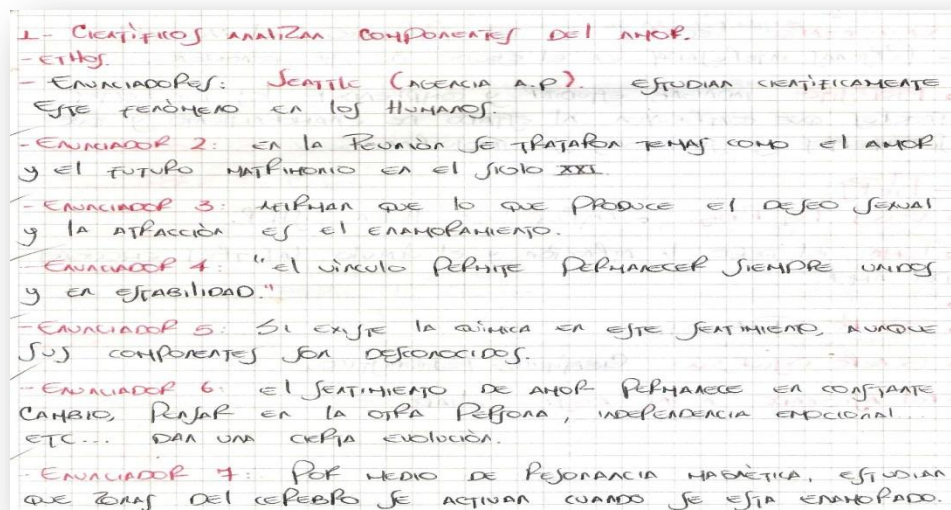 1- CIENTÍFICOS ANALIZAN COMPONENTES DEL AMOR.
- ETHOS.
- ENUNCIADORES: SEATTLE (AGENCIA A.P). ESTUDIAN CIENTÍFICAMENTE
ESTE FENÓMENO EN LOS HUMANOS.
- ENUNCIADOR 2: EN LA REUNIÓN SE TRATARON TEMAS COMO EL AMOR
Y EL FUTURO MATRIMONIO EN EL SIGLO XXI.
- ENUNCIADOR 3: AFIRMAN QUE LO QUE PRODUCE EL DESEO SEXUAL
Y LA ATRACCIÓN ES EL ENAMORAMIENTO.
- ENUNCIADOR 4: "EL VÍNCULO PERMITE PERMANECER SIEMPRE UNIDOS
Y EN ESTABILIDAD."
- ENUNCIADOR 5: SI EXISTE LA QUÍMICA EN ESTE SENTIMIENTO, AUNQUE
SUS COMPONENTES SON DESCONOCIDOS.
- ENUNCIADOR 6: EL SENTIMIENTO DE AMOR PERMANECE EN CONSTANTE
CAMBIO, PENSAR EN LA OTRA PERSONA, INDEPENDENCIA EMOCIONAL...
ETC... DAN UNA CIERTA EVOLUCIÓN.
- ENUNCIADOR 7: POR MEDIO DE RESONANCIA MAGNÉTICA, ESTUDIAN
QUE ZONAS DEL CEREBRO SE ACTIVAN CUANDO SE ESTA ENAMORADO.